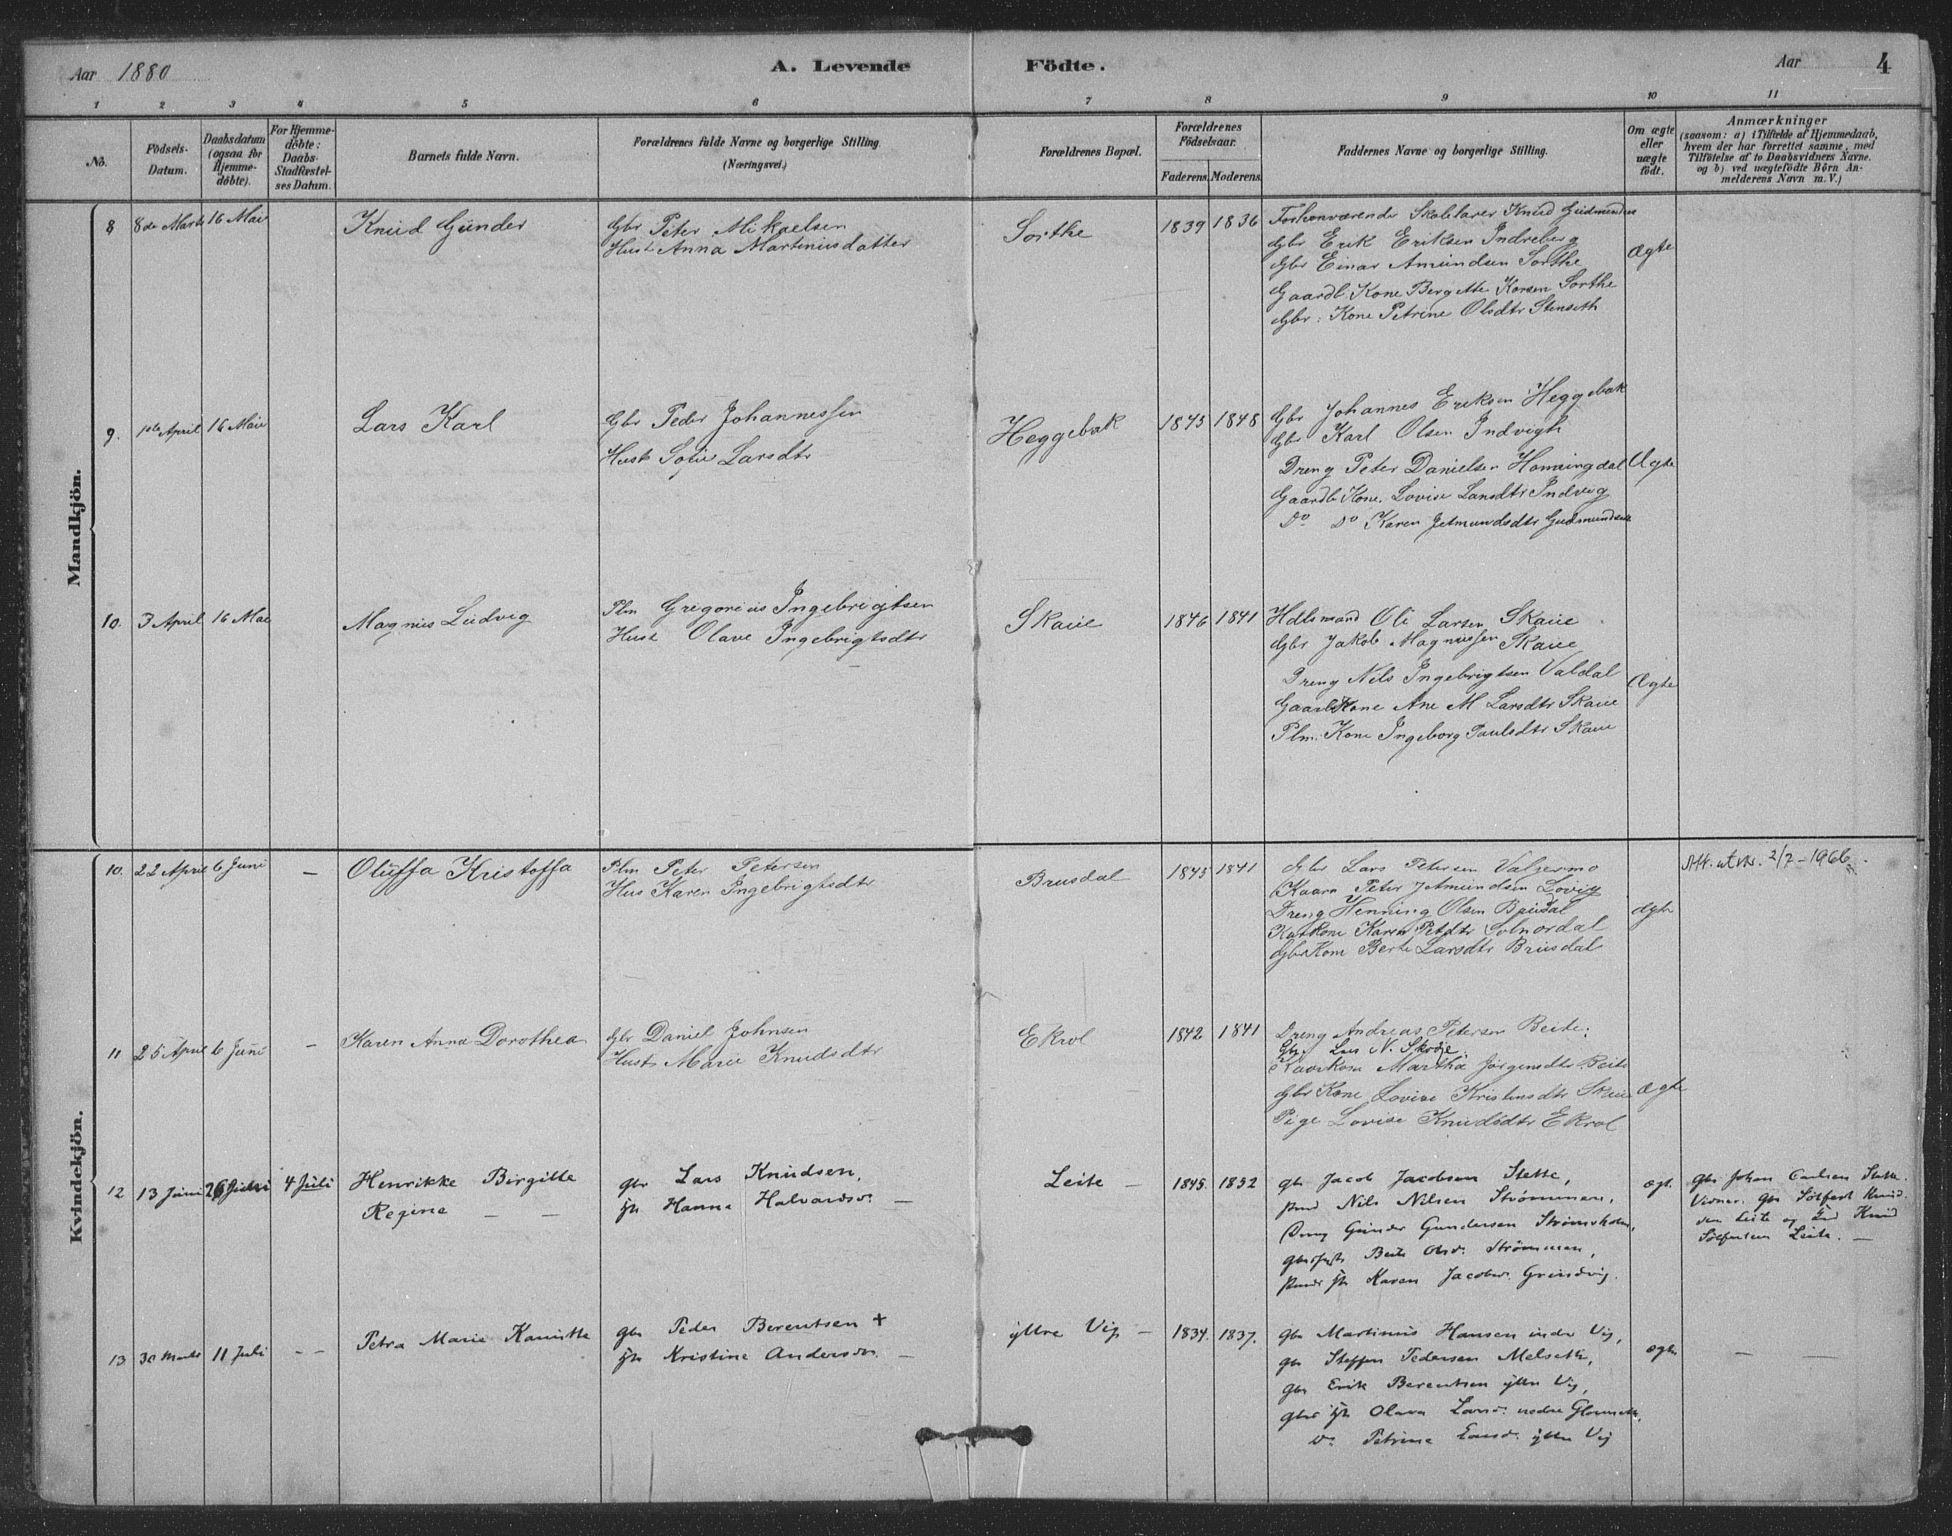 Aar 1880 A. Levende Födte. Aar 4
1 2 3 4 5 6 7 8 9 10 11
No.
Födsels-Datum.
Daabsdatum (ogsaa for Hjemme-döbte).
For Hjemme-döbte: Daabs-Stadfæstel-ses Datum.
Barnets fulde Navn.
Forældrenes fulde Navne og borgerlige Stilling (Næringsvei.)
Forældrenes Bopæl.
Forældrenes Födselsaar.
Faderens. Moderens.
Faddernes Navne og borgerlige Stilling.
Om ægte eller uægte födt.
Anmærkninger
(saasom: a) i Tilfælde af Hjemmedaab,
hvem der har forrettet samme, med
Tilföielse af to Daabsvidners Navne.
og b) ved uægtefödte Börn An-
melderens Navn m. V.)
Mandkjön.
8 8de Marts 16 Mai Knud Gunder
Gbr Peter Mikaelsen
Hust Anna Martinusdatter
Sorthe 1839 1836
Forhenværende Skolelærer Knud Gudmundsen
Gbr Erik Eriksen Indreberg
Gbr Einar Amundsen Sorthe
Gaardb. Kone Bergitte Korsen Sorthe
Gbr: Kone Petrine Olsdtr Stenseth
Ægte
9. 1ste April 16 Maie Lars Karl
Gbr Peder Johannessen
Hust Sofie Larsdtr
Heggebak 1845 1848
Gbr Johannes Eriksen Heggebak
Gbr Karl Olsen Indvigh
Dreng Peter Danielsen Honningdal
Gaardb Kone. Lovise Larsdtr Indvig
Do Do Karen Jetmundsdtr Gudmundset
Ægte
10. 3 April 16 Mai Magnus Ludvig
Plm Gregorius Ingebrigtsen
Hust Olave Ingebrigtsdtr
Skaue 1846 1841
Hdlsmand Ole Larsen Skaue
Gbr Jakob Magnussen Skaue
Dreng Nils Ingebrigtsen Valdal
Gaardb Kone Ane M Larsdtr Skaue
Plm: Kone Ingeborg Paulsdtr Skaue
Ægte
Kvindekjön.
10. 22 April 6 Juni — Oluffa Kristoffa
Plm Peter Petersen
Hus Karen Ingebrigtsdtr
Brusdal 1845 1841
Gbr Lars Petersen Valgermo
Kaarm Peter Jetmundsen Lovig
Dreng Henning Olsen Brusdal
Kone Karen Petdtr Solnordal
Gbr Kone Berte Larsdtr Brusdal
Ægte
Att. utskr. 2/7-1966.
11 25 April 6 Juni — Karen Anna Dorothea
Gbr Daniel Johnsen
Hust Marie Knudsdtr
Ekrol 1842 1841
Dreng Andreas Petersen Beite.
Gbr Lars N. Skodje.
Kaarkone Martha Jörgensdtr Beite
Gbr Kone Lovise Kristensdtr Skaue
Pige Lovise Knudsdtr Ekrol
Ægte
12 13 Juni 26 Juni 4 Juli Henrikke Birgitte
Regine — —
gbr Lars Knudsen,
Hanna Halvardsdr. —
Leite — 1845. 1852
gbr Jacob Jacobsen Stette,
Nils Nilsen Strömmen,
Dreng Gunder Gundersen Strömsholm,
Berte Olsdr. Strömmen,
Karen Jacobsdr. Grindvig.
ægt.
gbr Johan Carlsen Stette.
Vidner: gbr Sölfest Knud-
sen Leite og Knud
Sölfestsen Leite. —
13 30 Marts 11 Juli — — Petra Marie Kamitta
gbr Peder Berentsen +
Kristine Andersdr. —
ytre Vig — 1834. 1837.
gbr Martinus Hansen indre Vig,
gbr Steffen Pedersen Melseth,
gbr Erik Berentsen ytre Vig,
Olava Larsdr. nedre
Do Petrine Larsdr. ytre Vig
ægte — —